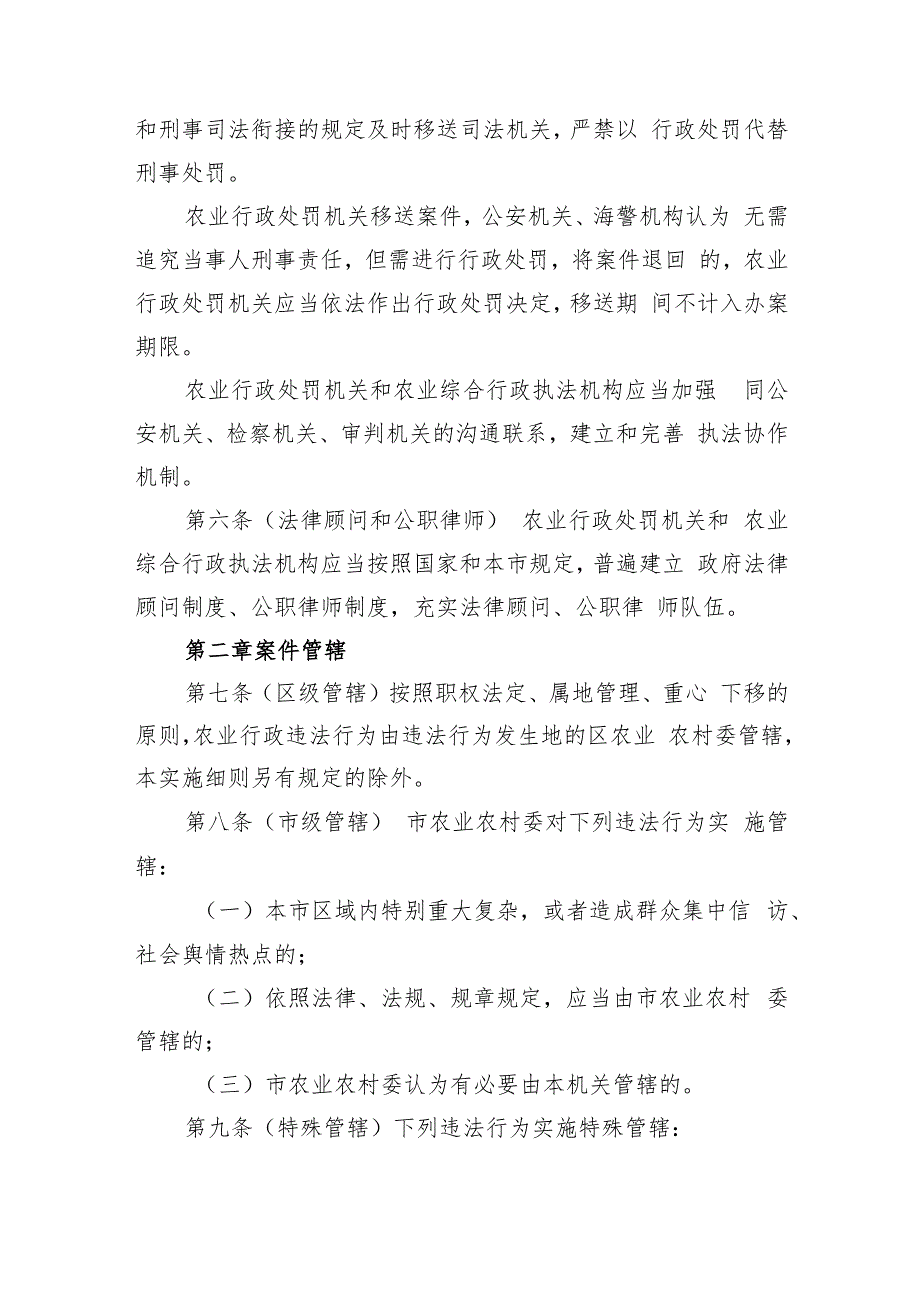 和刑事司法衔接的规定及时移送司法机关，严禁以 行政处罚代替
刑事处罚。
农业行政处罚机关移送案件，公安机关、海警机构认为 无需
追究当事人刑事责任，但需进行行政处罚，将案件退回 的，农业
行政处罚机关应当依法作出行政处罚决定，移送期 间不计入办案
期限。
农业行政处罚机关和农业综合行政执法机构应当加强 同公
安机关、检察机关、审判机关的沟通联系，建立和完善 执法协作
机制。
第六条（法律顾问和公职律师） 农业行政处罚机关和 农业
综合行政执法机构应当按照国家和本市规定，普遍建立 政府法律
顾问制度、公职律师制度，充实法律顾问、公职律 师队伍。
第二章案件管辖
第七条（区级管辖）按照职权法定、属地管理、重心 下移的
原则，农业行政违法行为由违法行为发生地的区农业 农村委管辖，
本实施细则另有规定的除外。
第八条（市级管辖） 市农业农村委对下列违法行为实 施管
辖：
（一）本市区域内特别重大复杂，或者造成群众集中信 访、
社会舆情热点的；
（二）依照法律、法规、规章规定，应当由市农业农村 委
管辖的；
（三）市农业农村委认为有必要由本机关管辖的。
第九条（特殊管辖）下列违法行为实施特殊管辖：